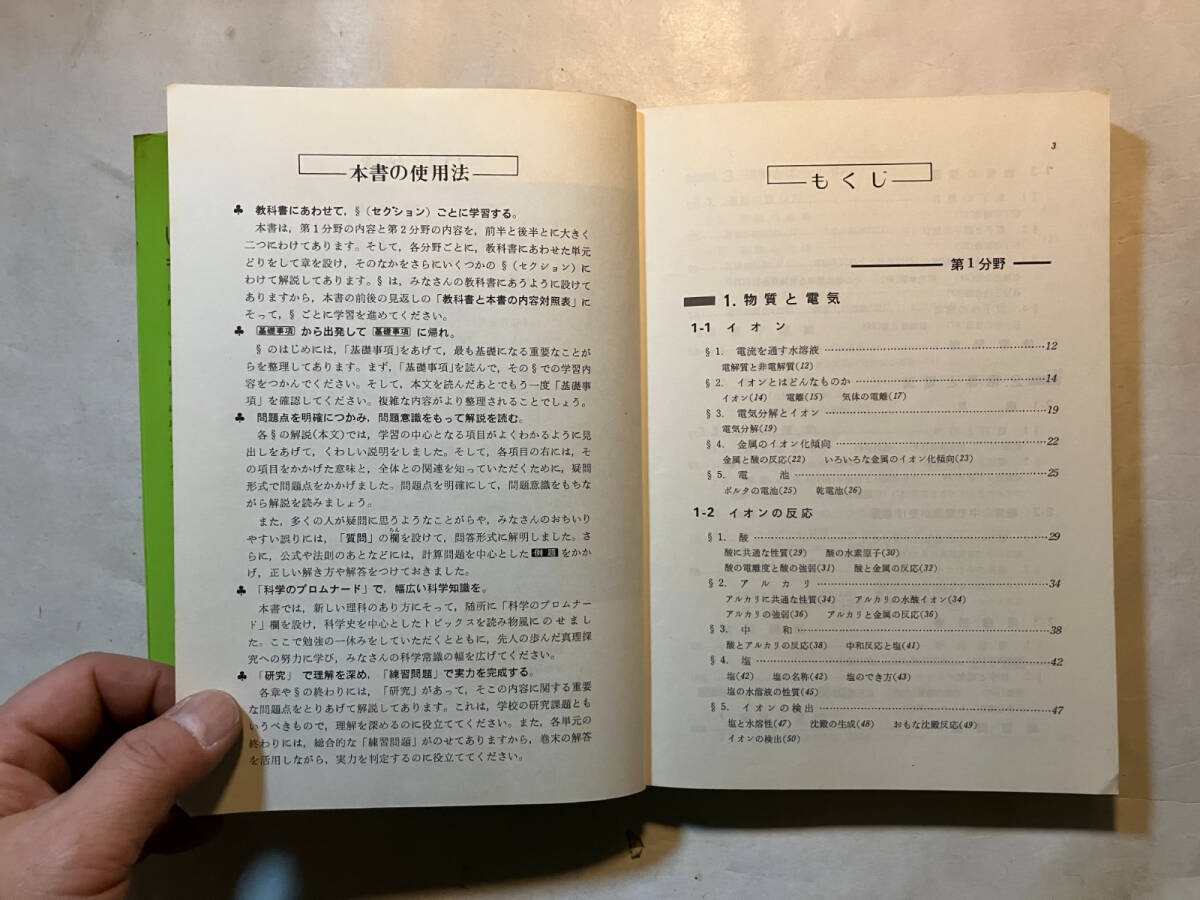 本書の使用法
♣ 教科書にあわせて，§（セクション）ごとに学習する。
本書は，第１分野の内容と第２分野の内容を，前半と後半とに大きく
二つにわけてあります。そして，各分野ごとに，教科書にあわせた単元
どりをして章を設け，そのなかをさらにいくつかの §（セクション）に
わけて解説してあります。§ は，みなさんの教科書にあうように設けて
ありますから，本書の前後の見返しの「教科書と本書の内容対照表」に
そって，§ ごとに学習を進めてください。
♣ 基礎事項 から出発して 基礎事項 に帰れ。
§ のはじめには，「基礎事項」をあげて，最も基礎になる重要なことが
らを整理してあります。まず，「基礎事項」を読んで，その § での学習内
容をつかんでください。そして，本文を読んだあとでもう一度「基礎事
項」を確認してください。複雑な内容がより整理されることでしょう。
♣ 問題点を明確につかみ，問題意識をもって解説を読む。
各 § の解説（本文）では，学習の中心となる項目がよくわかるように見
出しをあげて，くわしい説明をしました。そして，各項目の右には，そ
の項目をかかげた意味と，全体との関連を知っていただくために，疑問
形式で問題点をかかげました。問題点を明確にして，問題意識をもちな
がら解説を読みましょう。
また，多くの人が疑問に思うようなことがらや，みなさんのおちいり
やすい誤りには，「質問」の欄を設けて，問答形式に解明しました。さ
らに，公式や法則のあとなどには，計算問題を中心とした 例題 をかか
げ，正しい解き方や解答をつけておきました。
♣ 「科学のプロムナード」で，幅広い科学知識を。
本書では，新しい理科のあり方にそって，随所に「科学のプロムナー
ド」欄を設け，科学史を中心としたトピックスを読み物風にのせまし
た。ここで勉強の一休みをしていただくとともに，先人の歩んだ真理探
究への努力に学び，みなさんの科学常識の幅を広げてください。
♣ 「研究」で理解を深め，「練習問題」で実力を完成する。
各章や § の終わりには，「研究」があって，そこの内容に関する重要
な問題点をとりあげて解説してあります。これは，学校の研究課題とも
いうべきもので，理解を深めるのに役立ててください。また，各単元の
終わりには，総合的な「練習問題」がのせてありますから，巻末の解答
を活用しながら，実力を判定するのに役立ててください。
3
もくじ
第１分野
1. 物質と電気
1-1 イオン
§ 1. 電流を通す水溶液 12
電解質と非電解質(12)
§ 2. イオンとはどんなものか 14
イオン(14) 電離(15) 気体の電離(17)
§ 3. 電気分解とイオン 19
電気分解(19)
§ 4. 金属のイオン化傾向 22
金属と酸の反応(22) いろいろな金属のイオン化傾向(23)
§ 5. 電池 25
ボルタの電池(25) 乾電池(26)
1-2 イオンの反応
§ 1. 酸 29
酸に共通な性質(29) 酸の水素原子(30)
酸の電離度と酸の強弱(31) 酸と金属の反応(32)
§ 2. アルカリ 34
アルカリに共通な性質(34) アルカリの水酸イオン(34)
アルカリの強弱(36) アルカリと金属の反応(36)
§ 3. 中和 38
酸とアルカリの反応(38) 中和反応と塩(41)
§ 4. 塩 42
塩(42) 塩の名称(42) 塩のでき方(43)
塩の水溶液の性質(45)
§ 5. イオンの検出 47
塩と水溶性(47) 沈殿の生成(48) おもな沈殿反応(49)
イオンの検出(50)